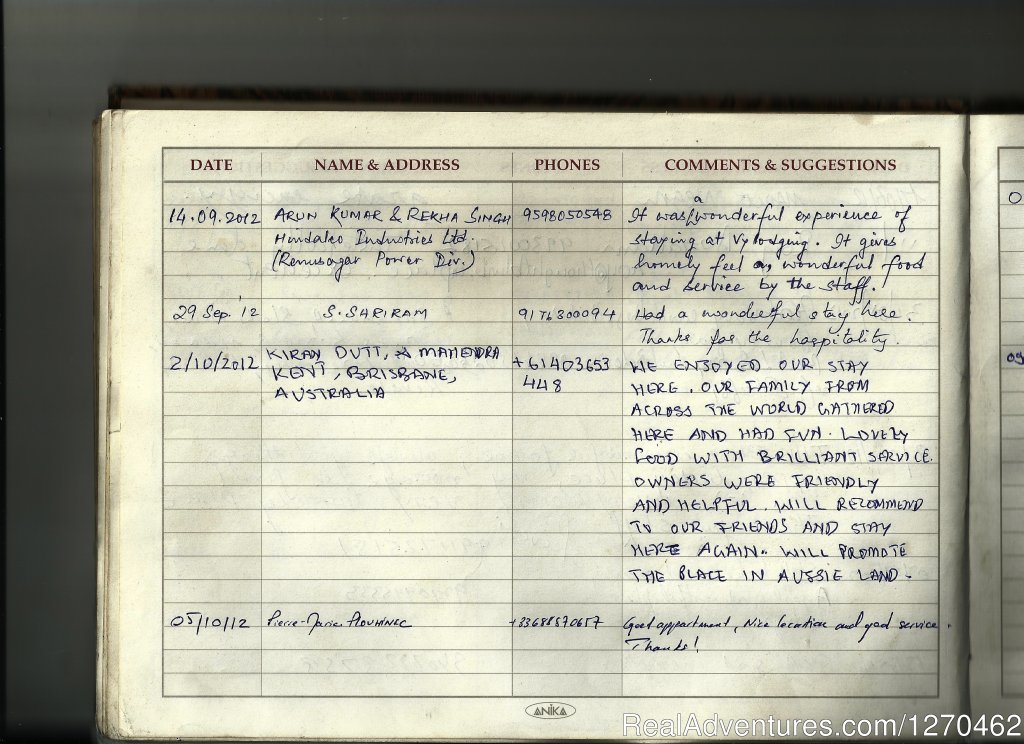 DATE NAME & ADDRESS PHONES COMMENTS & SUGGESTIONS
14.09.2012 ARUN KUMAR & REKHA SINGH 9598050548 It was a wonderful experience of
Hindalco Industries Ltd. staying at Vylodging. It gives
(Renusagar Power Div.) homely feel wonderful food
and service by the staff.
29 Sep '12 S. SARIRAM 9176300094 Had a wonderful stay here.
Thanks for the hospitality.
2/10/2012 KIRAN DUTT, & MAHENDRA +61403653 WE ENJOYED OUR STAY
KENT, BRISBANE, 448 HERE. OUR FAMILY FROM
AUSTRALIA ACROSS THE WORLD GATHERED
HERE AND HAD FUN. LOVELY
FOOD WITH BRILLIANT SERVICE.
OWNERS WERE FRIENDLY
AND HELPFUL. WILL RECOMMEND
TO OUR FRIENDS AND STAY
HERE AGAIN. WILL PROMOTE
THE PLACE IN AUSSIE LAND.
05/10/12 Pierre-Marie PLOUHINEC +33688570657 Good appartment, Nice location and good service.
Thanks!
ANIKA
RealAdventures.com/1270462